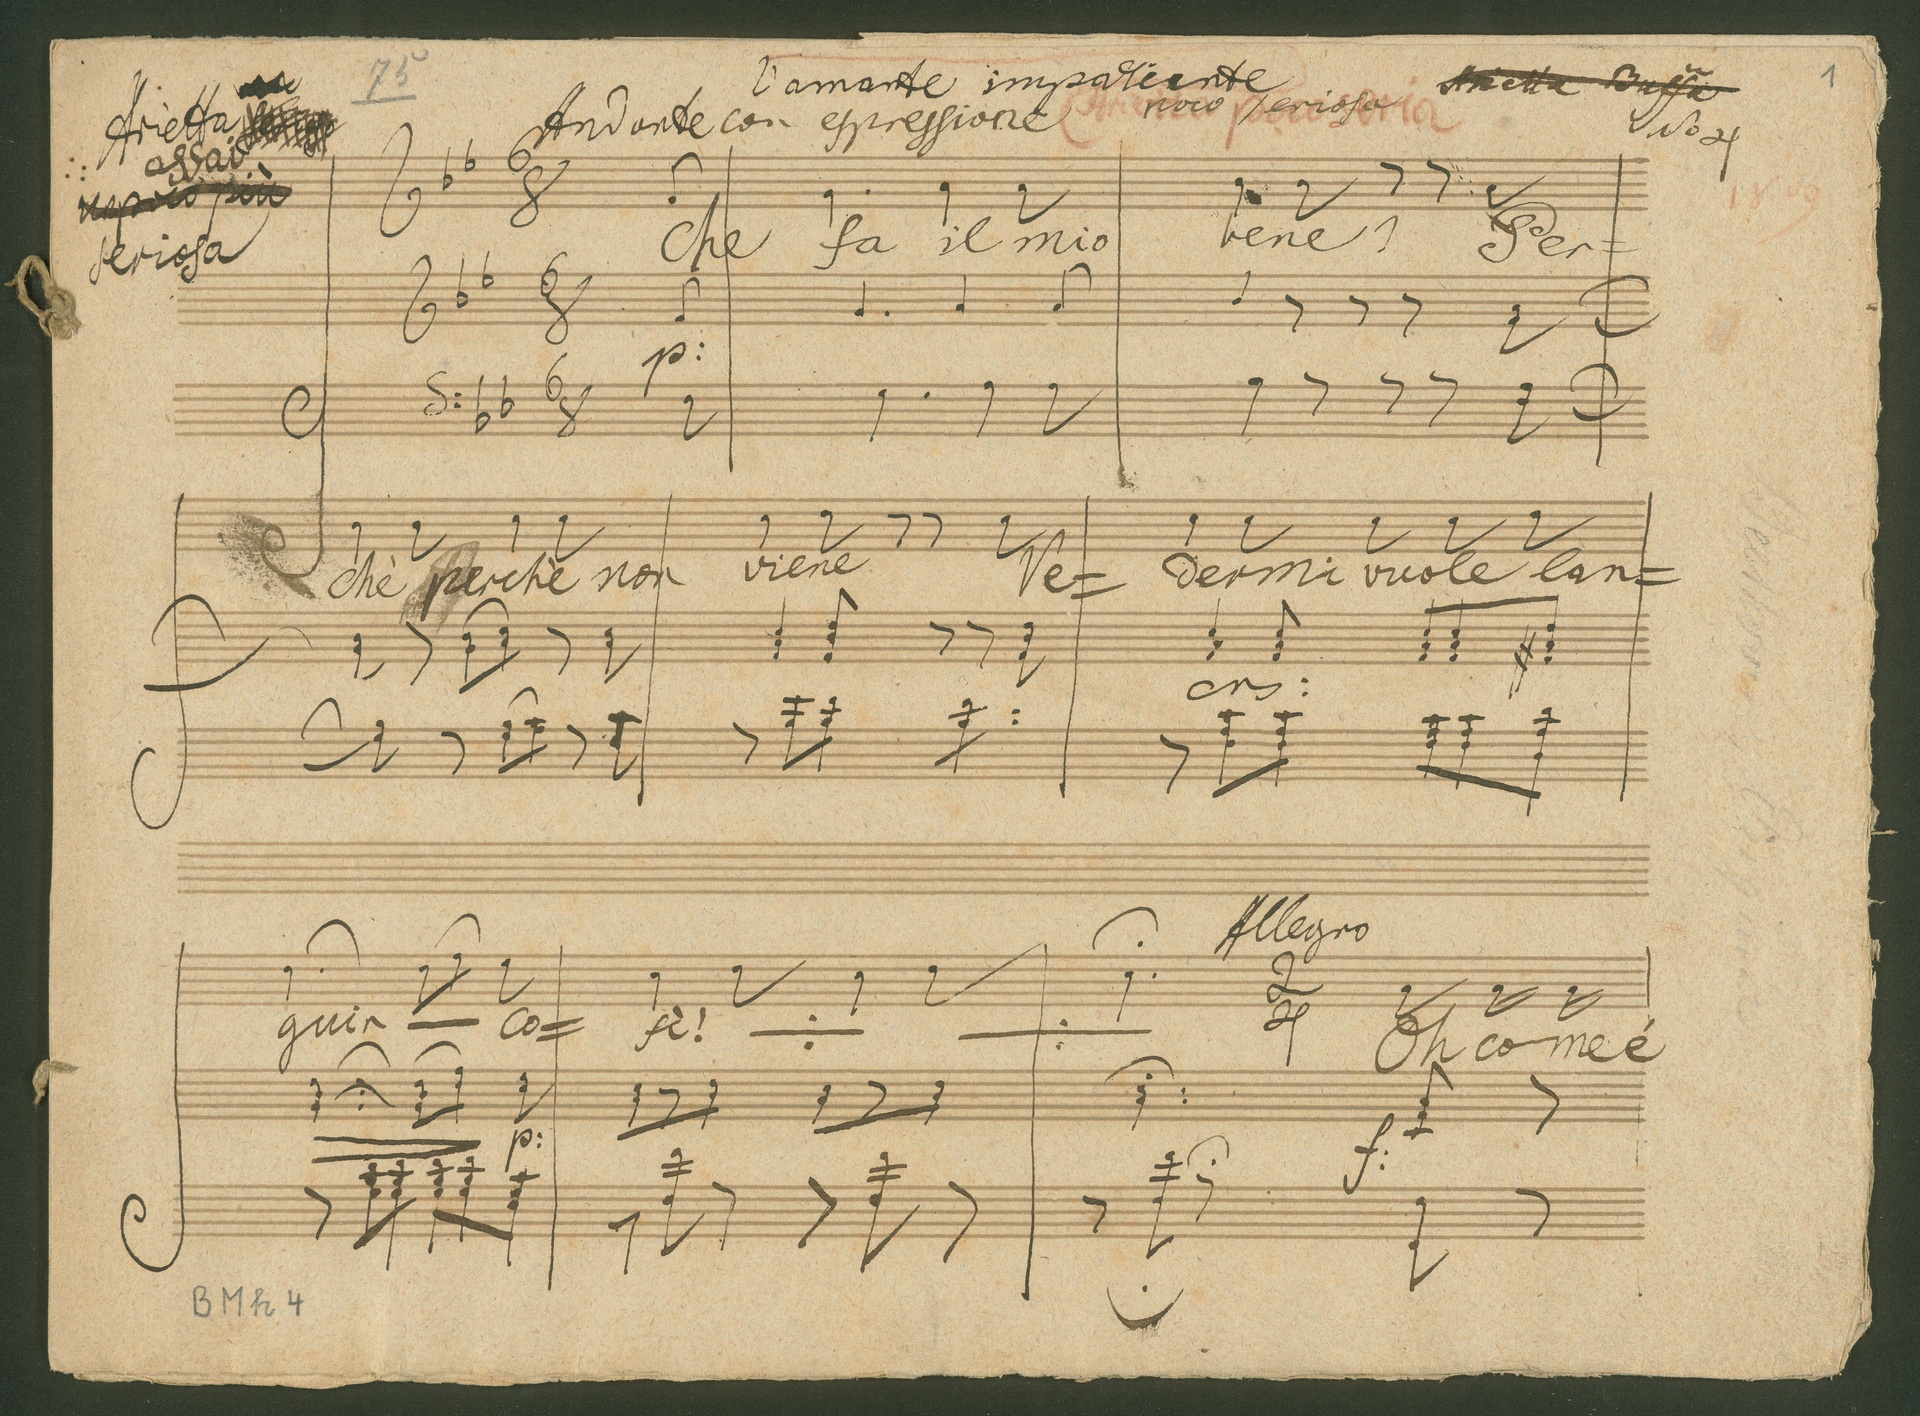 75
1
L'amante impatiente
Arietta Buffa
Arietta
assai
un poco più
seriosa
Andante con espressione
poco seriosa
No 4
Che fa il mio bene? Per=
p:
chè perchè non viene Ve= dermi vuole lan=
cres:
Allegro
guir — co= sì! Oh come è
p:
f:
BMh 4